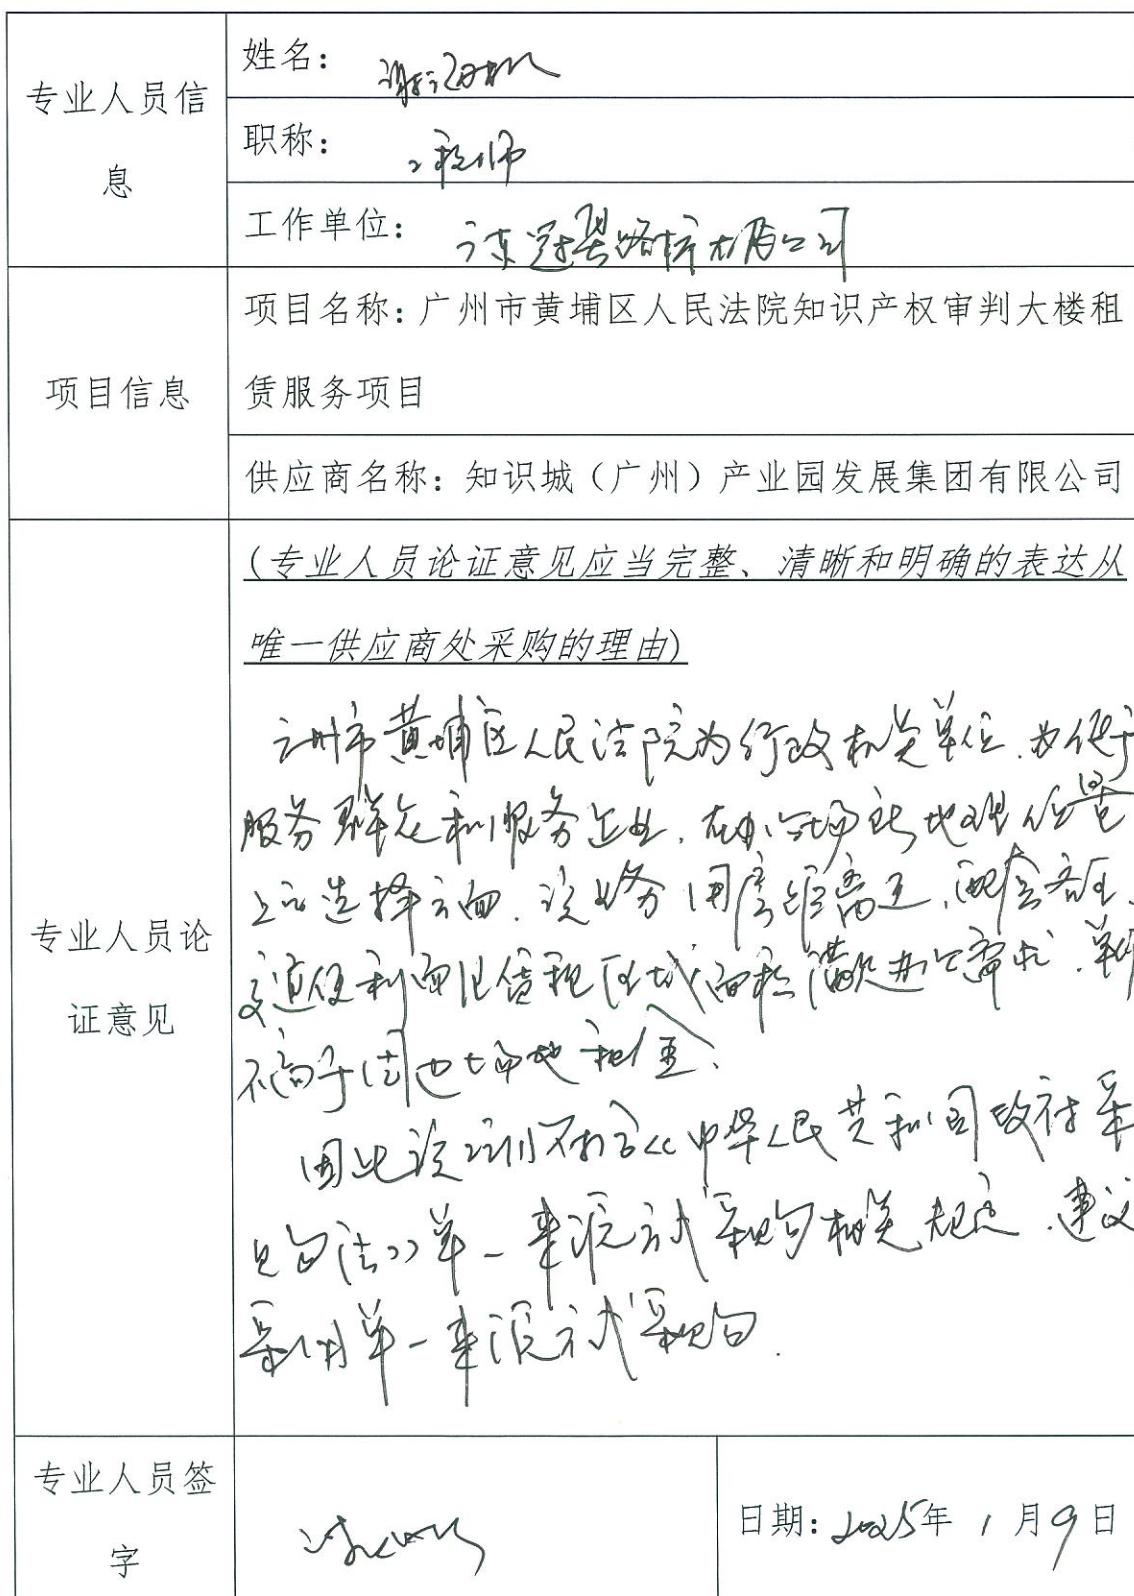 专业人员信息
姓名：
职称：工程师
工作单位：广东冠粤路桥有限公司
项目信息
项目名称：广州市黄埔区人民法院知识产权审判大楼租
赁服务项目
供应商名称：知识城（广州）产业园发展集团有限公司
专业人员论证意见
(专业人员论证意见应当完整、清晰和明确的表达从
唯一供应商处采购的理由)
广州市黄埔区人民法院为行政机关单位，为便于
服务群众和服务企业，在办公场所地理位置
上的选择方面，该业务用房距离近，配套齐全、
交通便利而且租区域面积满足办公需求，单价
不高于周边场地租金、
因此该项目符合《中华人民共和国政府采
购法》单一来源方式采购相关规定，建议
采用单一来源方式采购.
专业人员签字
日期：2025年1月9日